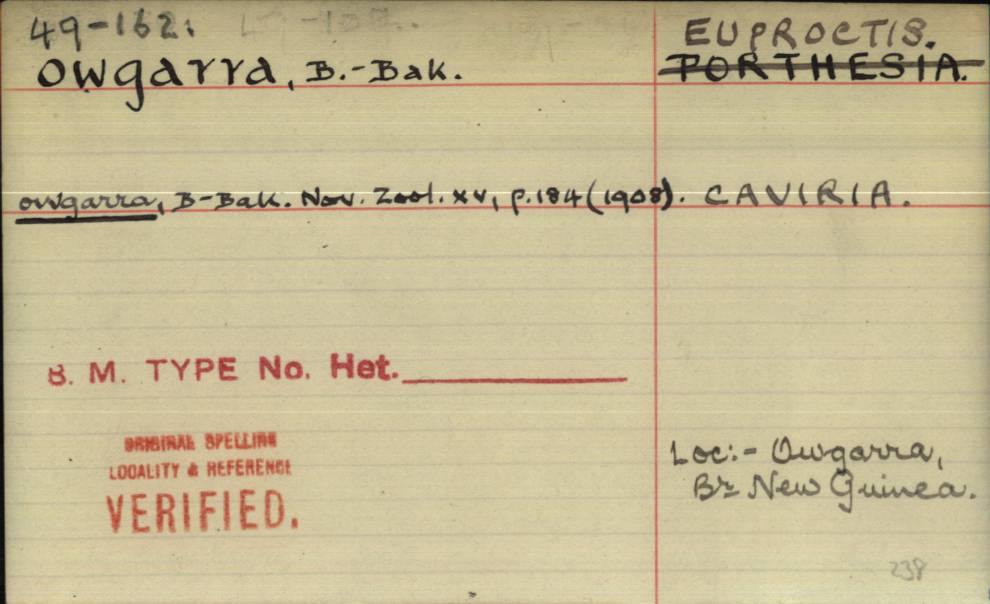 49-162.
EUPROCTIS.
owgarra, B.-Bak.
PORTHESIA.
owgarra, B-Bak. Nov. Zool. xv, p.184 (1908). CAVIRIA.
B. M. TYPE No. Het.
ORIGINAL SPELLING
LOCALITY & REFERENCE
VERIFIED.
Loc:- Owgarra,
Br New Guinea.
238